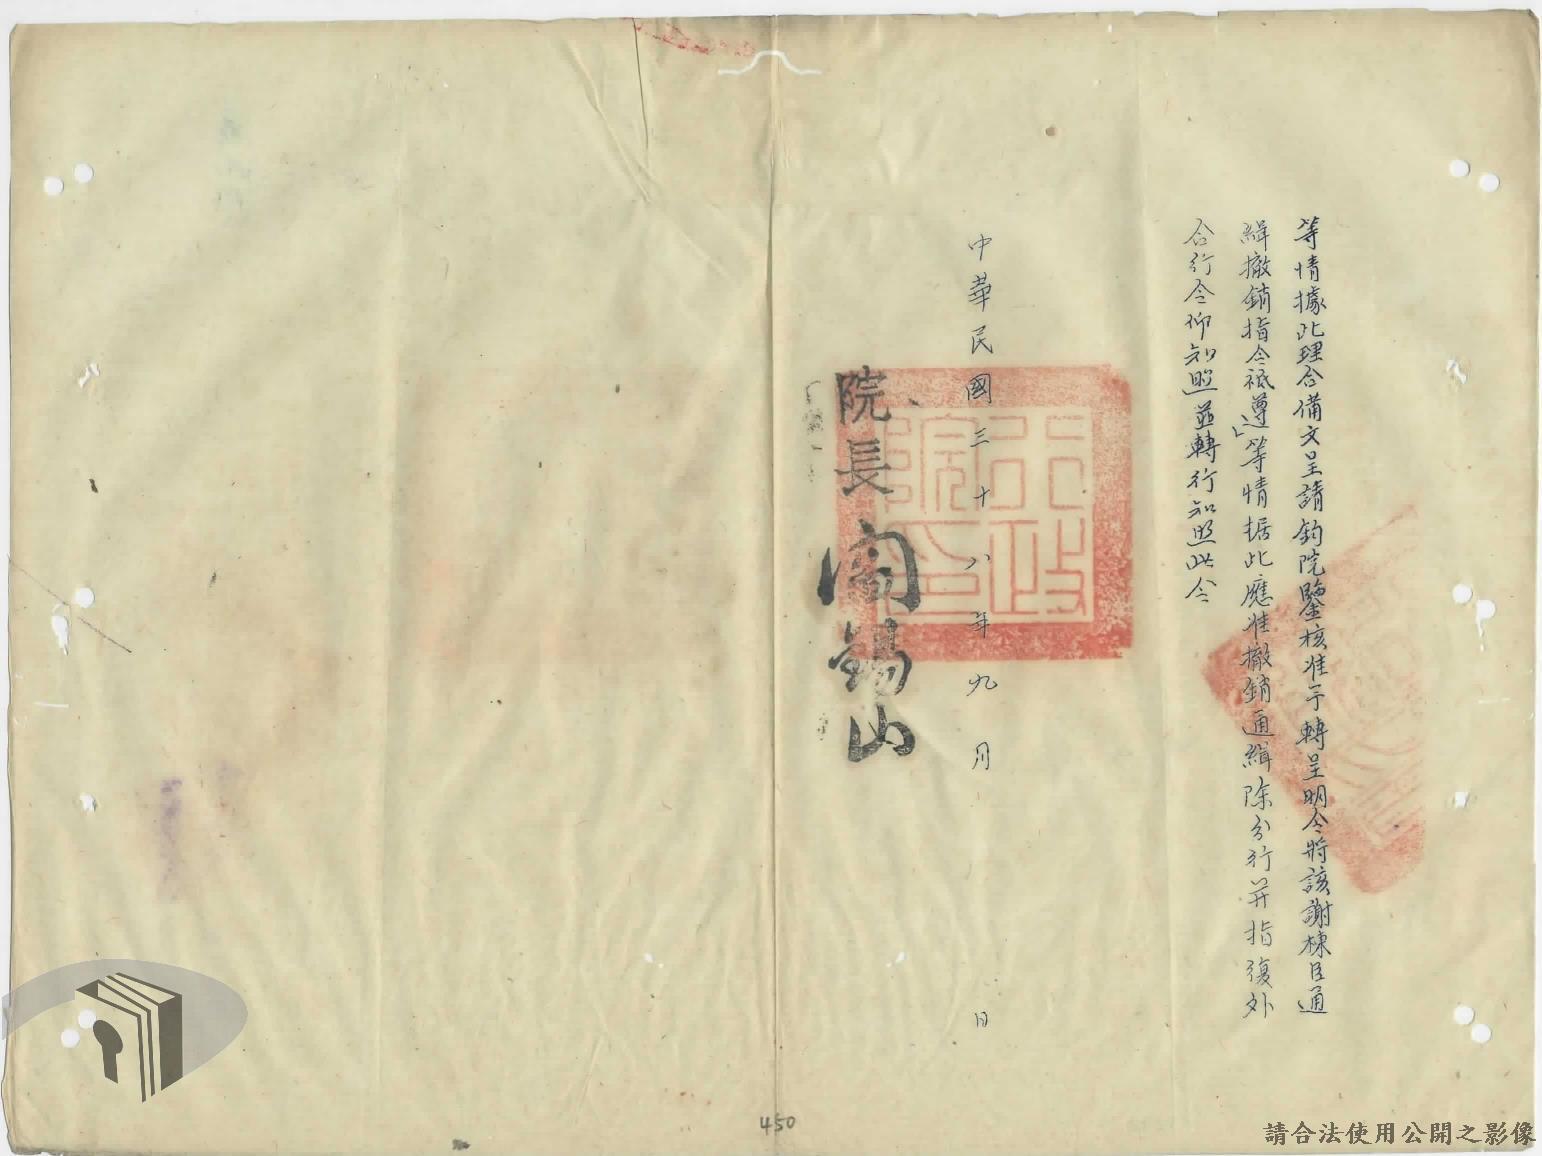 等情據此理合備文呈請鈞院鑒核准予轉呈明令將該謝棟臣通
緝撤銷指令祗遵」等情据此應准撤銷通緝除分行并指復外
合行令仰知照並轉行知照此令
中華民國三十八年九月 日
行政院印
院長 閻錫山
450
請合法使用公開之影像